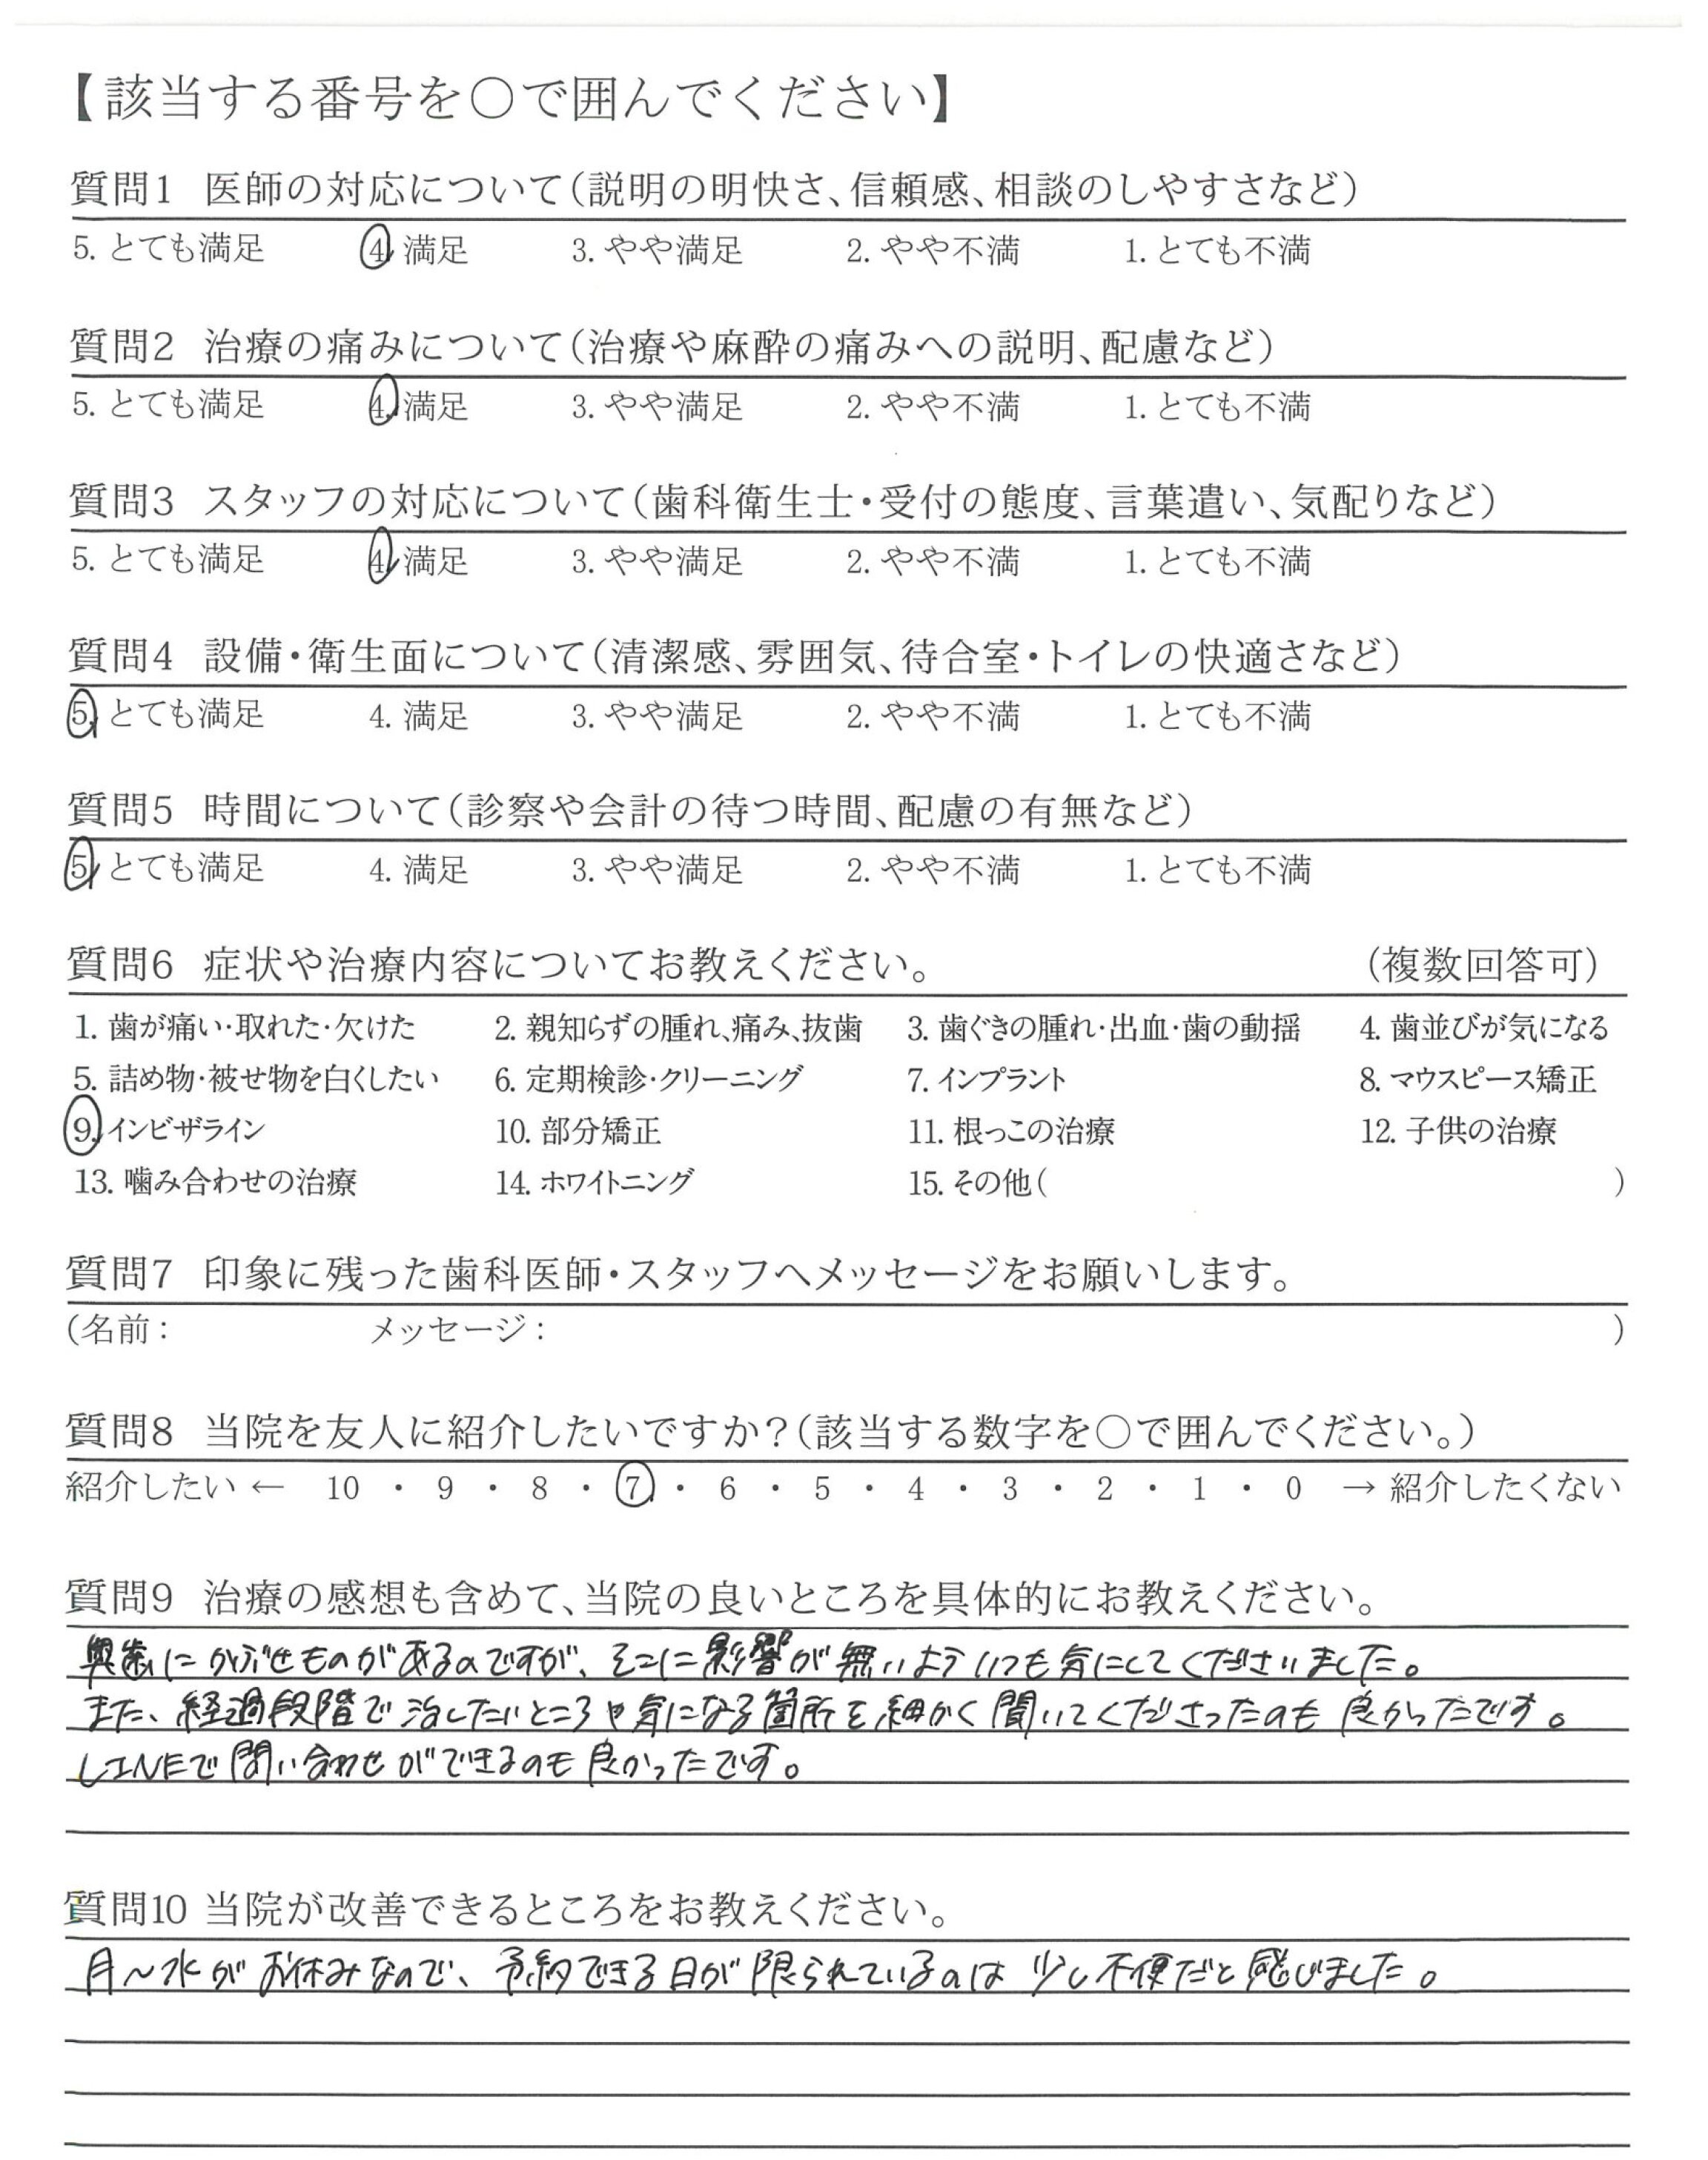 【該当する番号を○で囲んでください】
質問1 医師の対応について(説明の明快さ、信頼感、相談のしやすさなど)
5. とても満足 4. 満足 3. やや満足 2. やや不満 1. とても不満
質問2 治療の痛みについて(治療や麻酔の痛みへの説明、配慮など)
5. とても満足 4. 満足 3. やや満足 2. やや不満 1. とても不満
質問3 スタッフの対応について(歯科衛生士・受付の態度、言葉遣い、気配りなど)
5. とても満足 4. 満足 3. やや満足 2. やや不満 1. とても不満
質問4 設備・衛生面について(清潔感、雰囲気、待合室・トイレの快適さなど)
5. とても満足 4. 満足 3. やや満足 2. やや不満 1. とても不満
質問5 時間について(診察や会計の待つ時間、配慮の有無など)
5. とても満足 4. 満足 3. やや満足 2. やや不満 1. とても不満
質問6 症状や治療内容についてお教えください。 (複数回答可)
1. 歯が痛い・取れた・欠けた 2. 親知らずの腫れ、痛み、抜歯 3. 歯ぐきの腫れ・出血・歯の動揺 4. 歯並びが気になる
5. 詰め物・被せ物を白くしたい 6. 定期検診・クリーニング 7. インプラント 8. マウスピース矯正
9. インビザライン 10. 部分矯正 11. 根っこの治療 12. 子供の治療
13. 噛み合わせの治療 14. ホワイトニング 15. その他( )
質問7 印象に残った歯科医師・スタッフへメッセージをお願いします。
(名前: メッセージ: )
質問8 当院を友人に紹介したいですか?(該当する数字を○で囲んでください。)
紹介したい ← 10 ・ 9 ・ 8 ・ 7 ・ 6 ・ 5 ・ 4 ・ 3 ・ 2 ・ 1 ・ 0 → 紹介したくない
質問9 治療の感想も含めて、当院の良いところを具体的にお教えください。
奥歯にかぶせものがあるのですが、そこに影響が無いよういつも気にしてくださいました。
また、経過段階で治したいところや気になる箇所を細かく聞いてくださったのも良かったです。
LINEで問い合わせができるのも良かったです。
質問10 当院が改善できるところをお教えください。
月~水がお休みなので、予約できる日が限られているのは少し不便だと感じました。